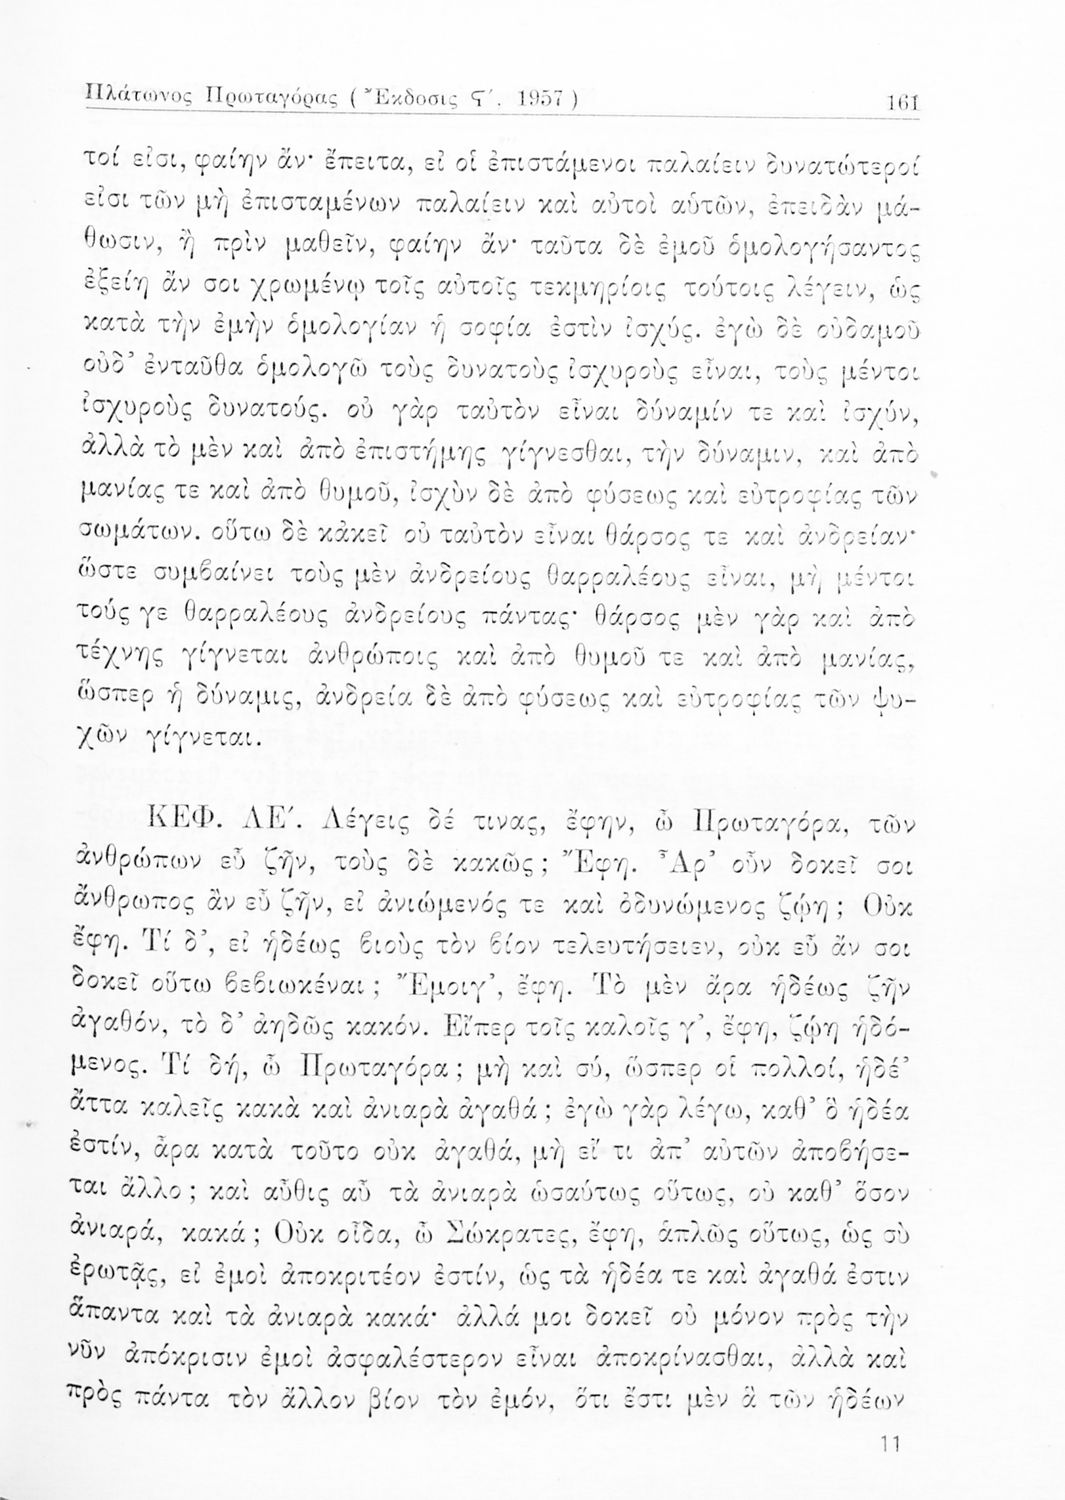 Πλάτωνος Πρωταγόρας ( Ἔκδοσις Ϛʹ. 1957 ) 161
τοί εἰσι, φαίην ἄν· ἔπειτα, εἰ οἱ ἐπιστάμενοι παλαίειν δυνατώτεροί
εἰσι τῶν μὴ ἐπισταμένων παλαίειν καὶ αὐτοὶ αὑτῶν, ἐπειδὰν μά-
θωσιν, ἢ πρὶν μαθεῖν, φαίην ἄν· ταῦτα δὲ ἐμοῦ ὁμολογήσαντος
ἐξείη ἄν σοι χρωμένῳ τοῖς αὐτοῖς τεκμηρίοις τούτοις λέγειν, ὡς
κατὰ τὴν ἐμὴν ὁμολογίαν ἡ σοφία ἐστὶν ἰσχύς. ἐγὼ δὲ οὐδαμοῦ
οὐδ᾽ ἐνταῦθα ὁμολογῶ τοὺς δυνατοὺς ἰσχυροὺς εἶναι, τοὺς μέντοι
ἰσχυροὺς δυνατούς. οὐ γὰρ ταὐτὸν εἶναι δύναμίν τε καὶ ἰσχύν,
ἀλλὰ τὸ μὲν καὶ ἀπὸ ἐπιστήμης γίγνεσθαι, τὴν δύναμιν, καὶ ἀπὸ
μανίας τε καὶ ἀπὸ θυμοῦ, ἰσχὺν δὲ ἀπὸ φύσεως καὶ εὐτροφίας τῶν
σωμάτων. οὕτω δὲ κἀκεῖ οὐ ταὐτὸν εἶναι θάρσος τε καὶ ἀνδρείαν·
ὥστε συμβαίνει τοὺς μὲν ἀνδρείους θαρραλέους εἶναι, μὴ μέντοι
τούς γε θαρραλέους ἀνδρείους πάντας· θάρσος μὲν γὰρ καὶ ἀπὸ
τέχνης γίγνεται ἀνθρώποις καὶ ἀπὸ θυμοῦ τε καὶ ἀπὸ μανίας,
ὥσπερ ἡ δύναμις, ἀνδρεία δὲ ἀπὸ φύσεως καὶ εὐτροφίας τῶν ψυ-
χῶν γίγνεται.
ΚΕΦ. ΛΕʹ. Λέγεις δέ τινας, ἔφην, ὦ Πρωταγόρα, τῶν
ἀνθρώπων εὖ ζῆν, τοὺς δὲ κακῶς ; Ἔφη. Ἆρ᾽ οὖν δοκεῖ σοι
ἄνθρωπος ἂν εὖ ζῆν, εἰ ἀνιώμενός τε καὶ ὀδυνώμενος ζῴη ; Οὐκ
ἔφη. Τί δ᾽, εἰ ἡδέως βιοὺς τὸν βίον τελευτήσειεν, οὐκ εὖ ἄν σοι
δοκεῖ οὕτω βεβιωκέναι ; Ἔμοιγ᾽, ἔφη. Τὸ μὲν ἄρα ἡδέως ζῆν
ἀγαθόν, τὸ δ᾽ ἀηδῶς κακόν. Εἴπερ τοῖς καλοῖς γ᾽, ἔφη, ζῴη ἡδό-
μενος. Τί δή, ὦ Πρωταγόρα ; μὴ καὶ σύ, ὥσπερ οἱ πολλοί, ἡδέ᾽
ἄττα καλεῖς κακὰ καὶ ἀνιαρὰ ἀγαθά ; ἐγὼ γὰρ λέγω, καθ᾽ ὃ ἡδέα
ἐστίν, ἆρα κατὰ τοῦτο οὐκ ἀγαθά, μὴ εἴ τι ἀπ᾽ αὐτῶν ἀποβήσε-
ται ἄλλο ; καὶ αὖθις αὖ τὰ ἀνιαρὰ ὡσαύτως οὕτως, οὐ καθ᾽ ὅσον
ἀνιαρά, κακά ; Οὐκ οἶδα, ὦ Σώκρατες, ἔφη, ἁπλῶς οὕτως, ὡς σὺ
ἐρωτᾷς, εἰ ἐμοὶ ἀποκριτέον ἐστίν, ὡς τὰ ἡδέα τε καὶ ἀγαθά ἐστιν
ἅπαντα καὶ τὰ ἀνιαρὰ κακά· ἀλλά μοι δοκεῖ οὐ μόνον πρὸς τὴν
νῦν ἀπόκρισιν ἐμοὶ ἀσφαλέστερον εἶναι ἀποκρίνασθαι, ἀλλὰ καὶ
πρὸς πάντα τὸν ἄλλον βίον τὸν ἐμόν, ὅτι ἔστι μὲν ἃ τῶν ἡδέων
11